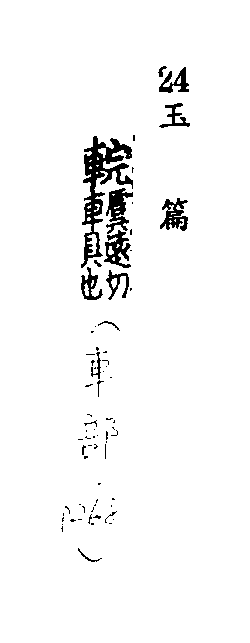 24
玉篇
輐虞遠切
車具也
（車部・P268）